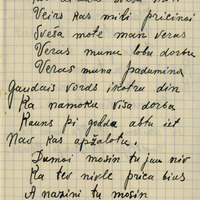 Veirs kas mīli pricinoi
Sveša mote man veras
Veras munu lobu dorbu
Veras muna padumina
Gaudais vords ikotru din
Ka namoku visa dorba
Kauns pi golda abtu iet
Nav kas apžalotu.
Dumoi mosin tu jau niv
Ka tev nivle prica bius
A nazini tu mosin